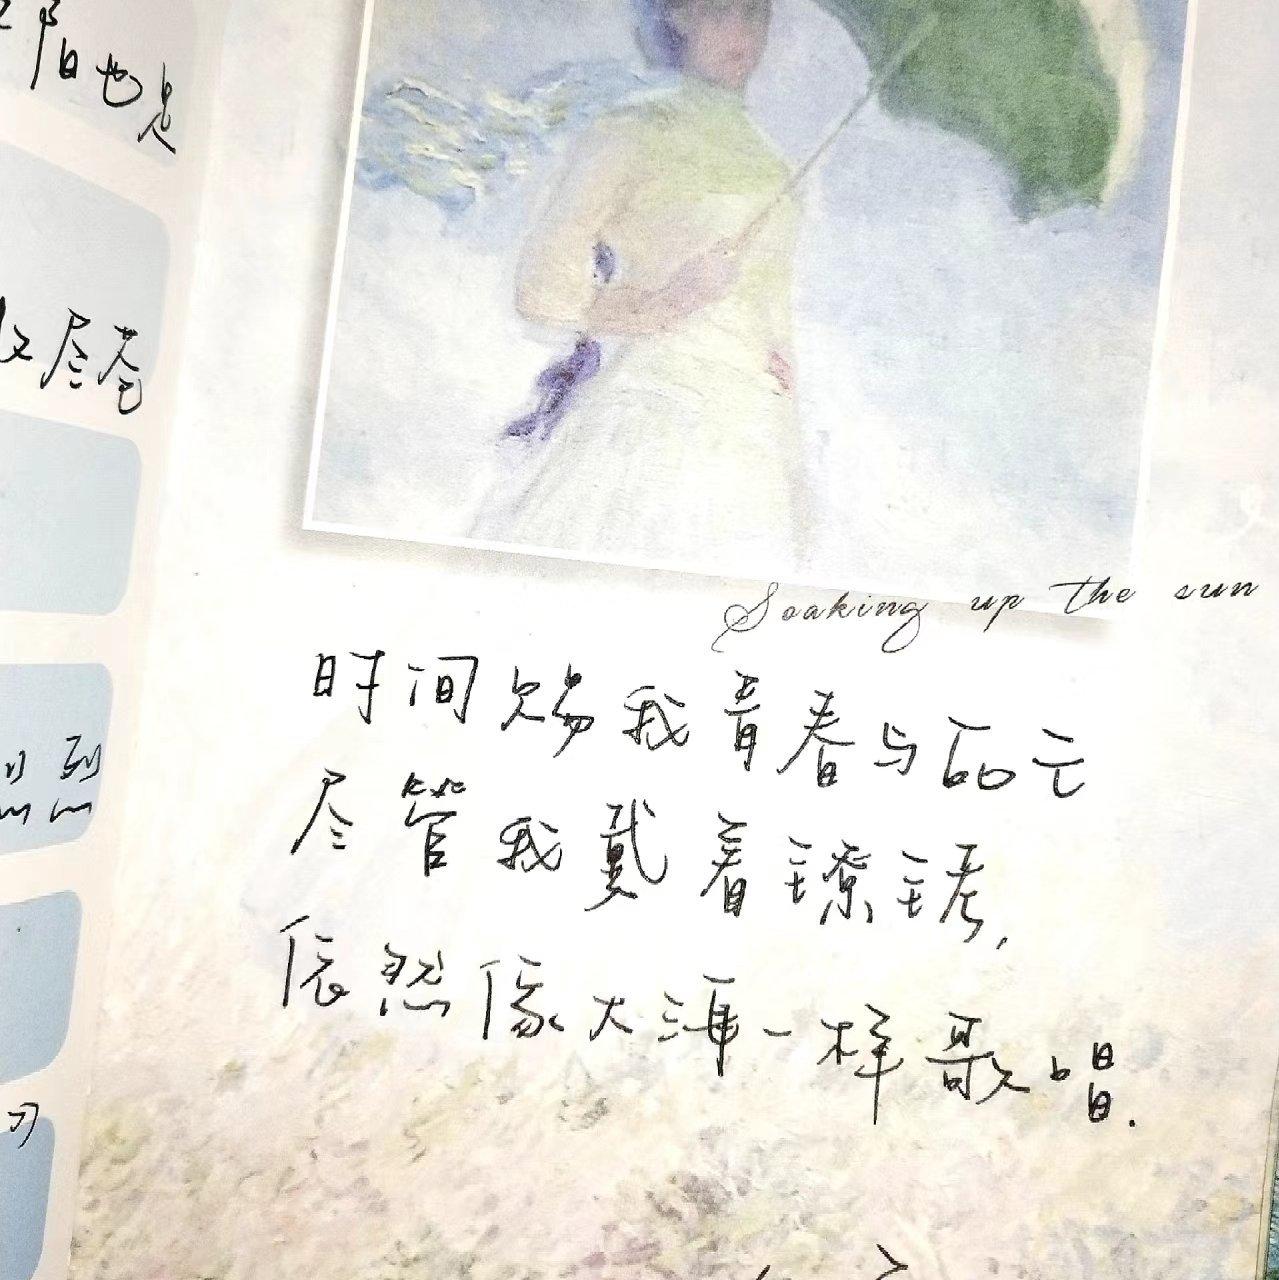 阳也是
尽苍
Soaking up the sun
时间赐我青春与死亡
尽管我戴着镣铐,
依然像大海一样歌唱.